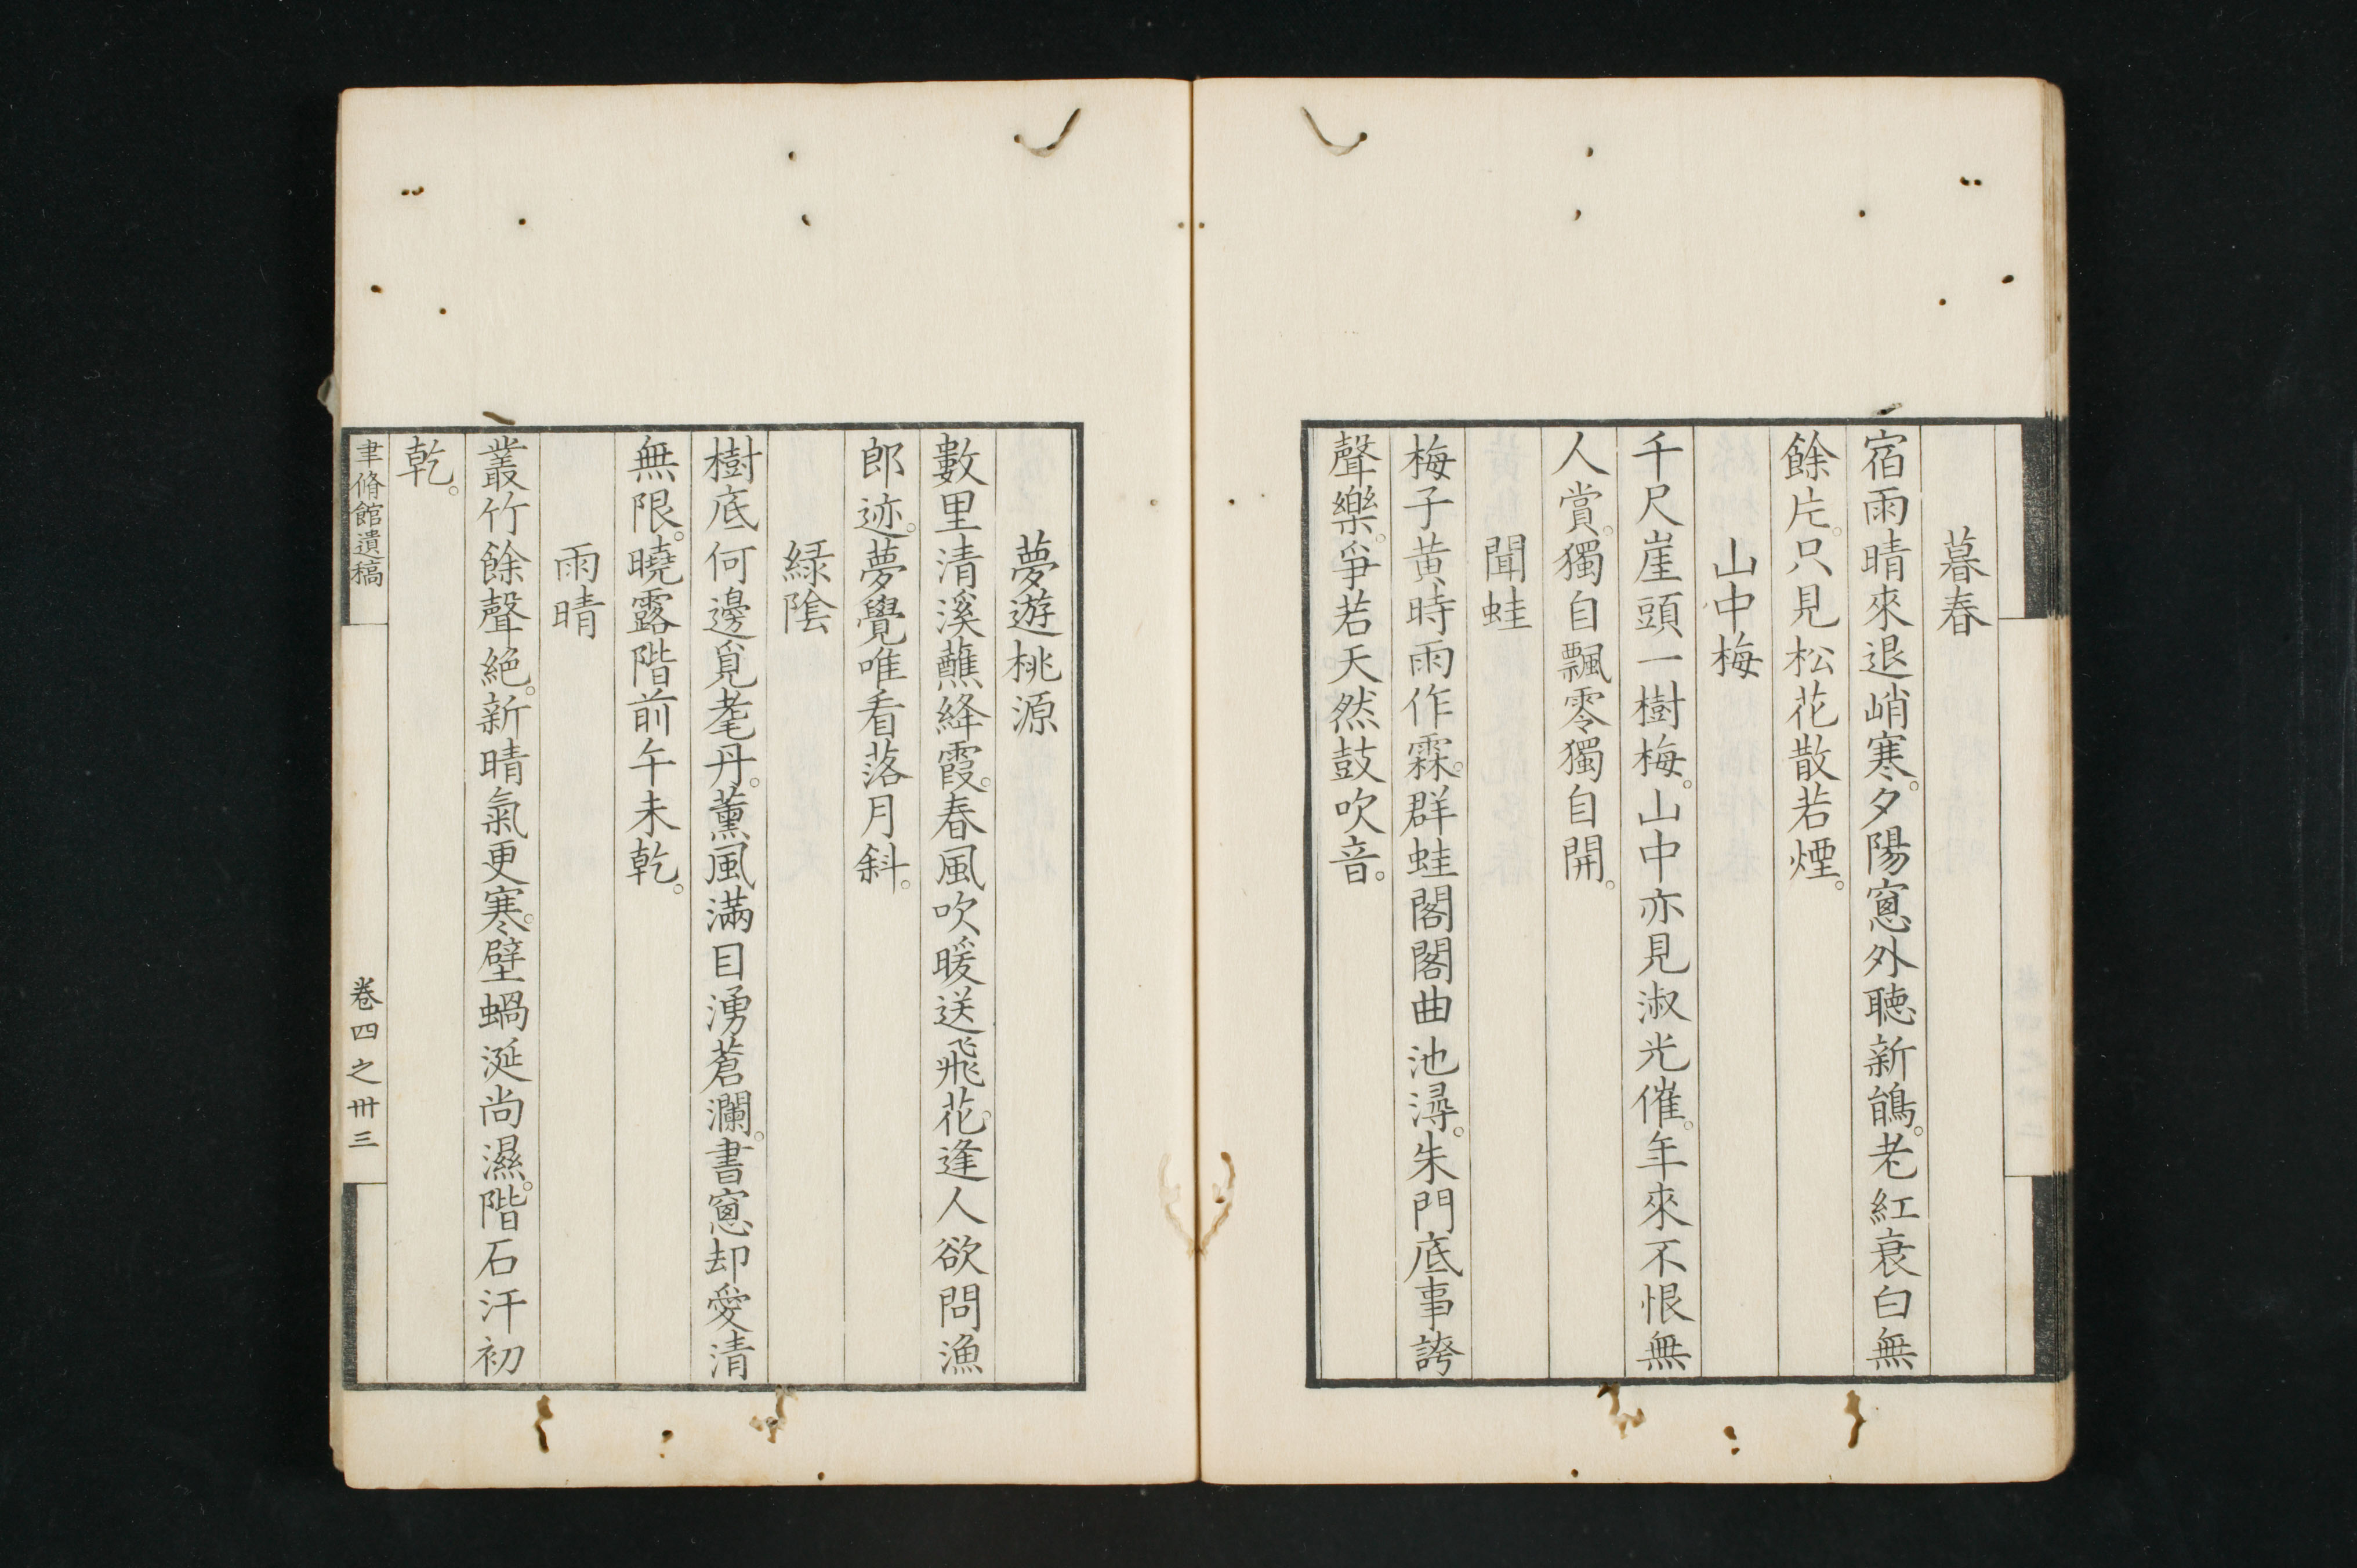 暮春
宿雨晴來退峭寒。夕陽窻外聽新鵃。老紅衰白無
餘片。只見松花散若煙。
山中梅
千尺崖頭一樹梅。山中亦見淑光催。年來不恨無
人賞。獨自飄零獨自開。
聞蛙
梅子黄時雨作霖。群蛙閣閣曲池潯。朱門底事誇
聲樂。爭若天然鼓吹音。
夢遊桃源
數里清溪蘸絳霞。春風吹暖送飛花。逢人欲問漁
郎迹。夢覺唯看落月斜。
緑陰
樹底何邊覓耄丹。薫風滿目湧蒼瀾。書窻却愛清
無限。曉露階前午未乾。
雨晴
叢竹餘聲絶。新晴氣更寒。壁蝸涎尚濕。階石汗初
乾。
聿脩館遺稿
卷四之卅三